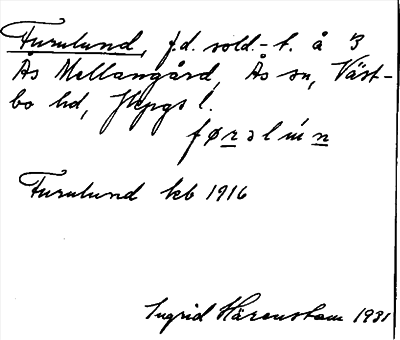 Furulund, f.d. sold.-t. å 3
Ås Mellangård, Ås sn, Väst-
bo hd, Jkpgs l.
føṟəlúṉ
Furulund kb 1916
Ingrid Härenstam 1931